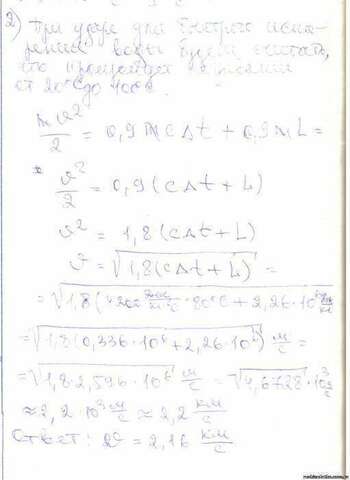 2) При ударе для быстрого испа-
рения воды будем считать,
что произойдёт
от 20°С до 100°С.
mv²/2 = 0,9mcΔt + 0,9mL =
v²/2 = 0,9(cΔt + L)
v² = 1,8(cΔt + L)
v = √(1,8(cΔt + L)) =
= √(1,8(4200 · 80°С + 2,26·10⁶
= √(1,8(0,336·10⁶ + 2,26·10⁶)) м/с =
= √(1,8·2,596·10⁶) м/с = √4,6728·10³ м/с
≈ 2,2·10³ м/с ≈ 2,2 км/с
Ответ: v = 2,16 км/с